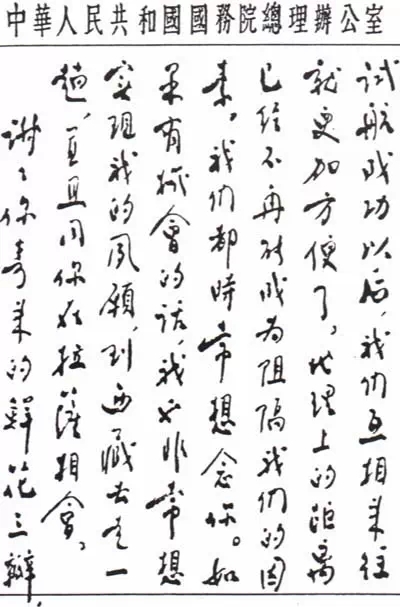 中華人民共和國國務院總理辦公室
试航成功以后，我们互相来往
就更加方便了。地理上的距离
已经不再能成为阻隔我们的因
素。我们都時常想念你。如
果有机會的话，我也非常想
实现我的夙愿，到西藏去走一
趟，并且同你在拉薩相會。
谢谢你寄来的鲜花三瓣，